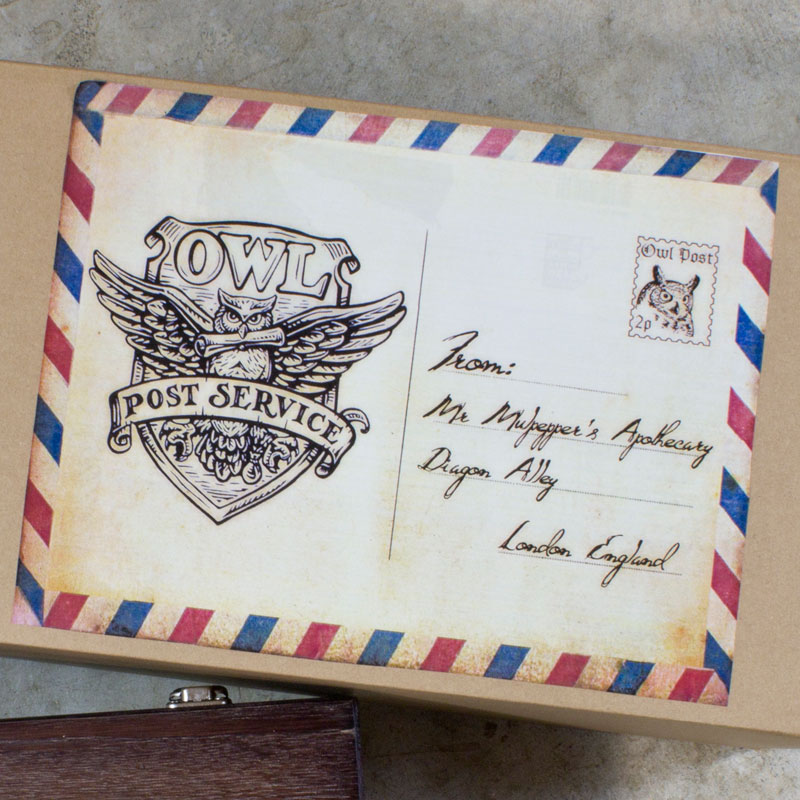 OWL
POST SERVICE
Owl Post
2p
From:
Mr Mulpepper's Apothecary
Diagon Alley
London England